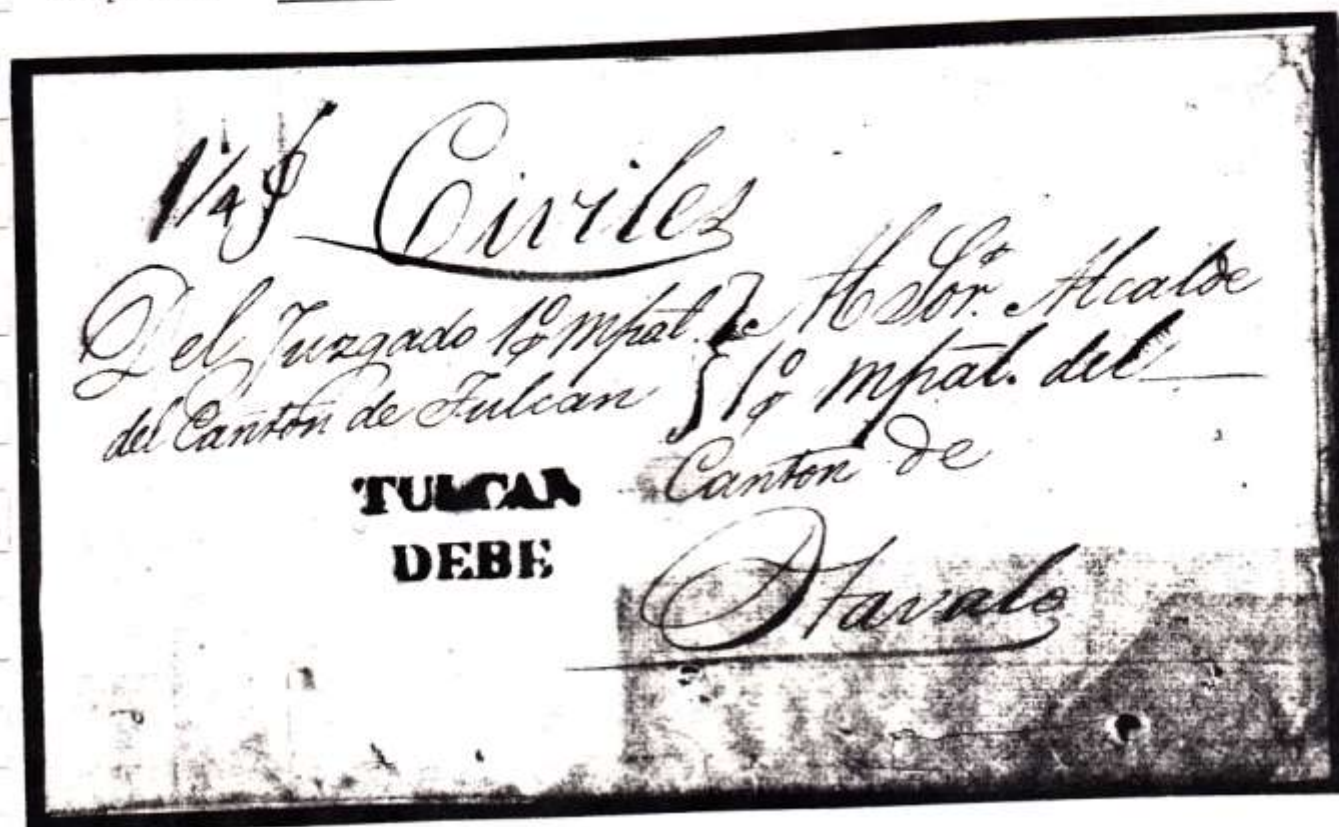 1/4 $ Civiles
Del Juzgado 1º Mpal.
del Canton de Tulcan
Al Sor. Alcalde
1º Mpal. del
Canton de
Otavalo
TULCAN
DEBE